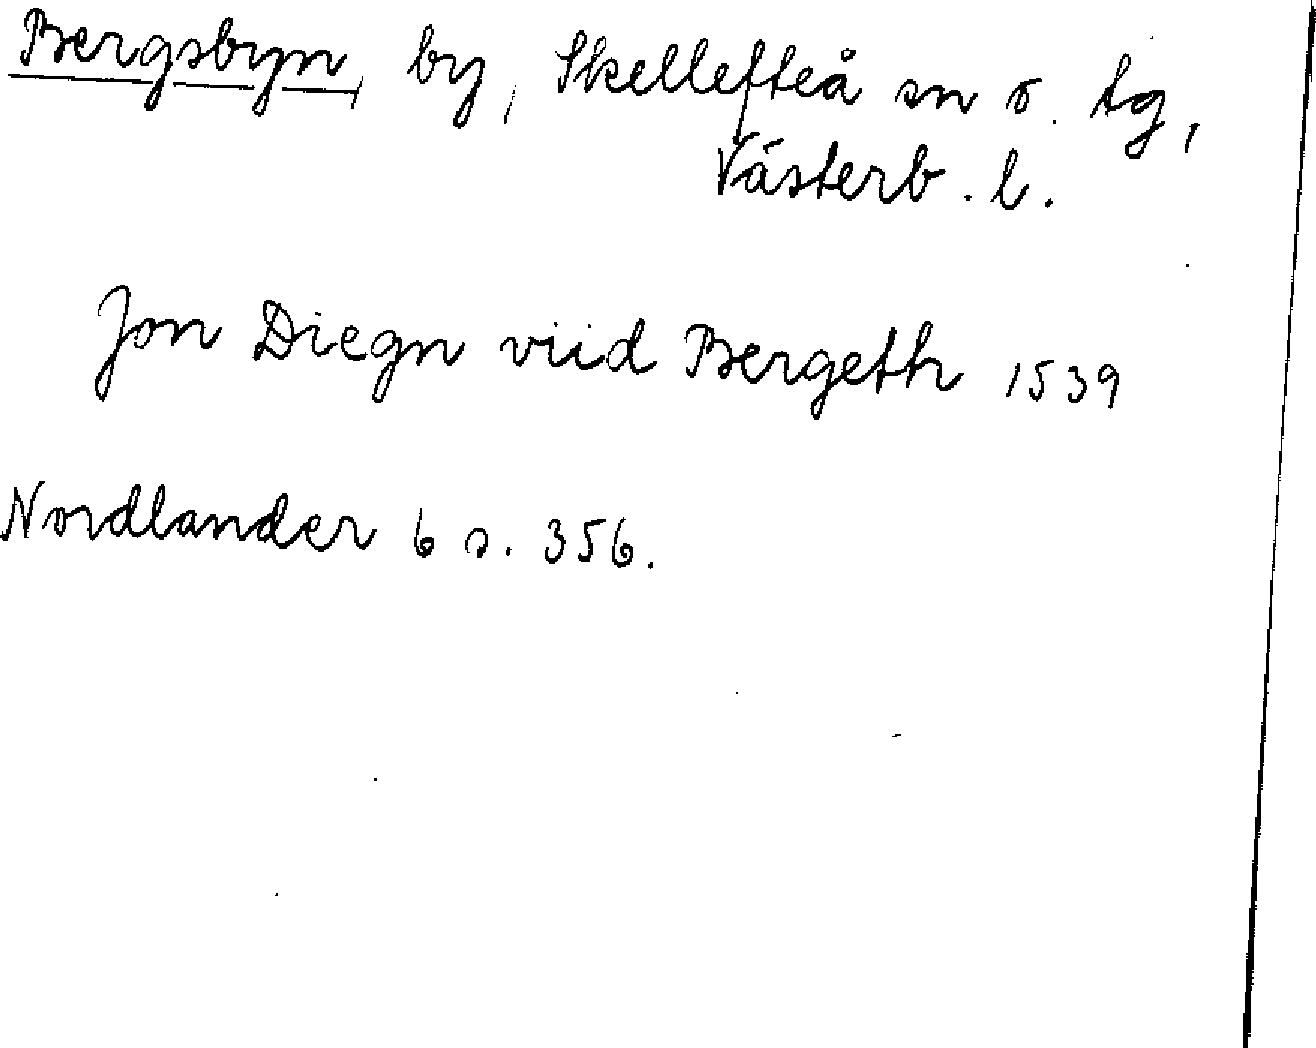 Bergsbyn, by, Skellefteå sn o. tg,
Västerb. l.
Jon Diegn viid Bergeth 1539
Nordlander 6 s. 356.